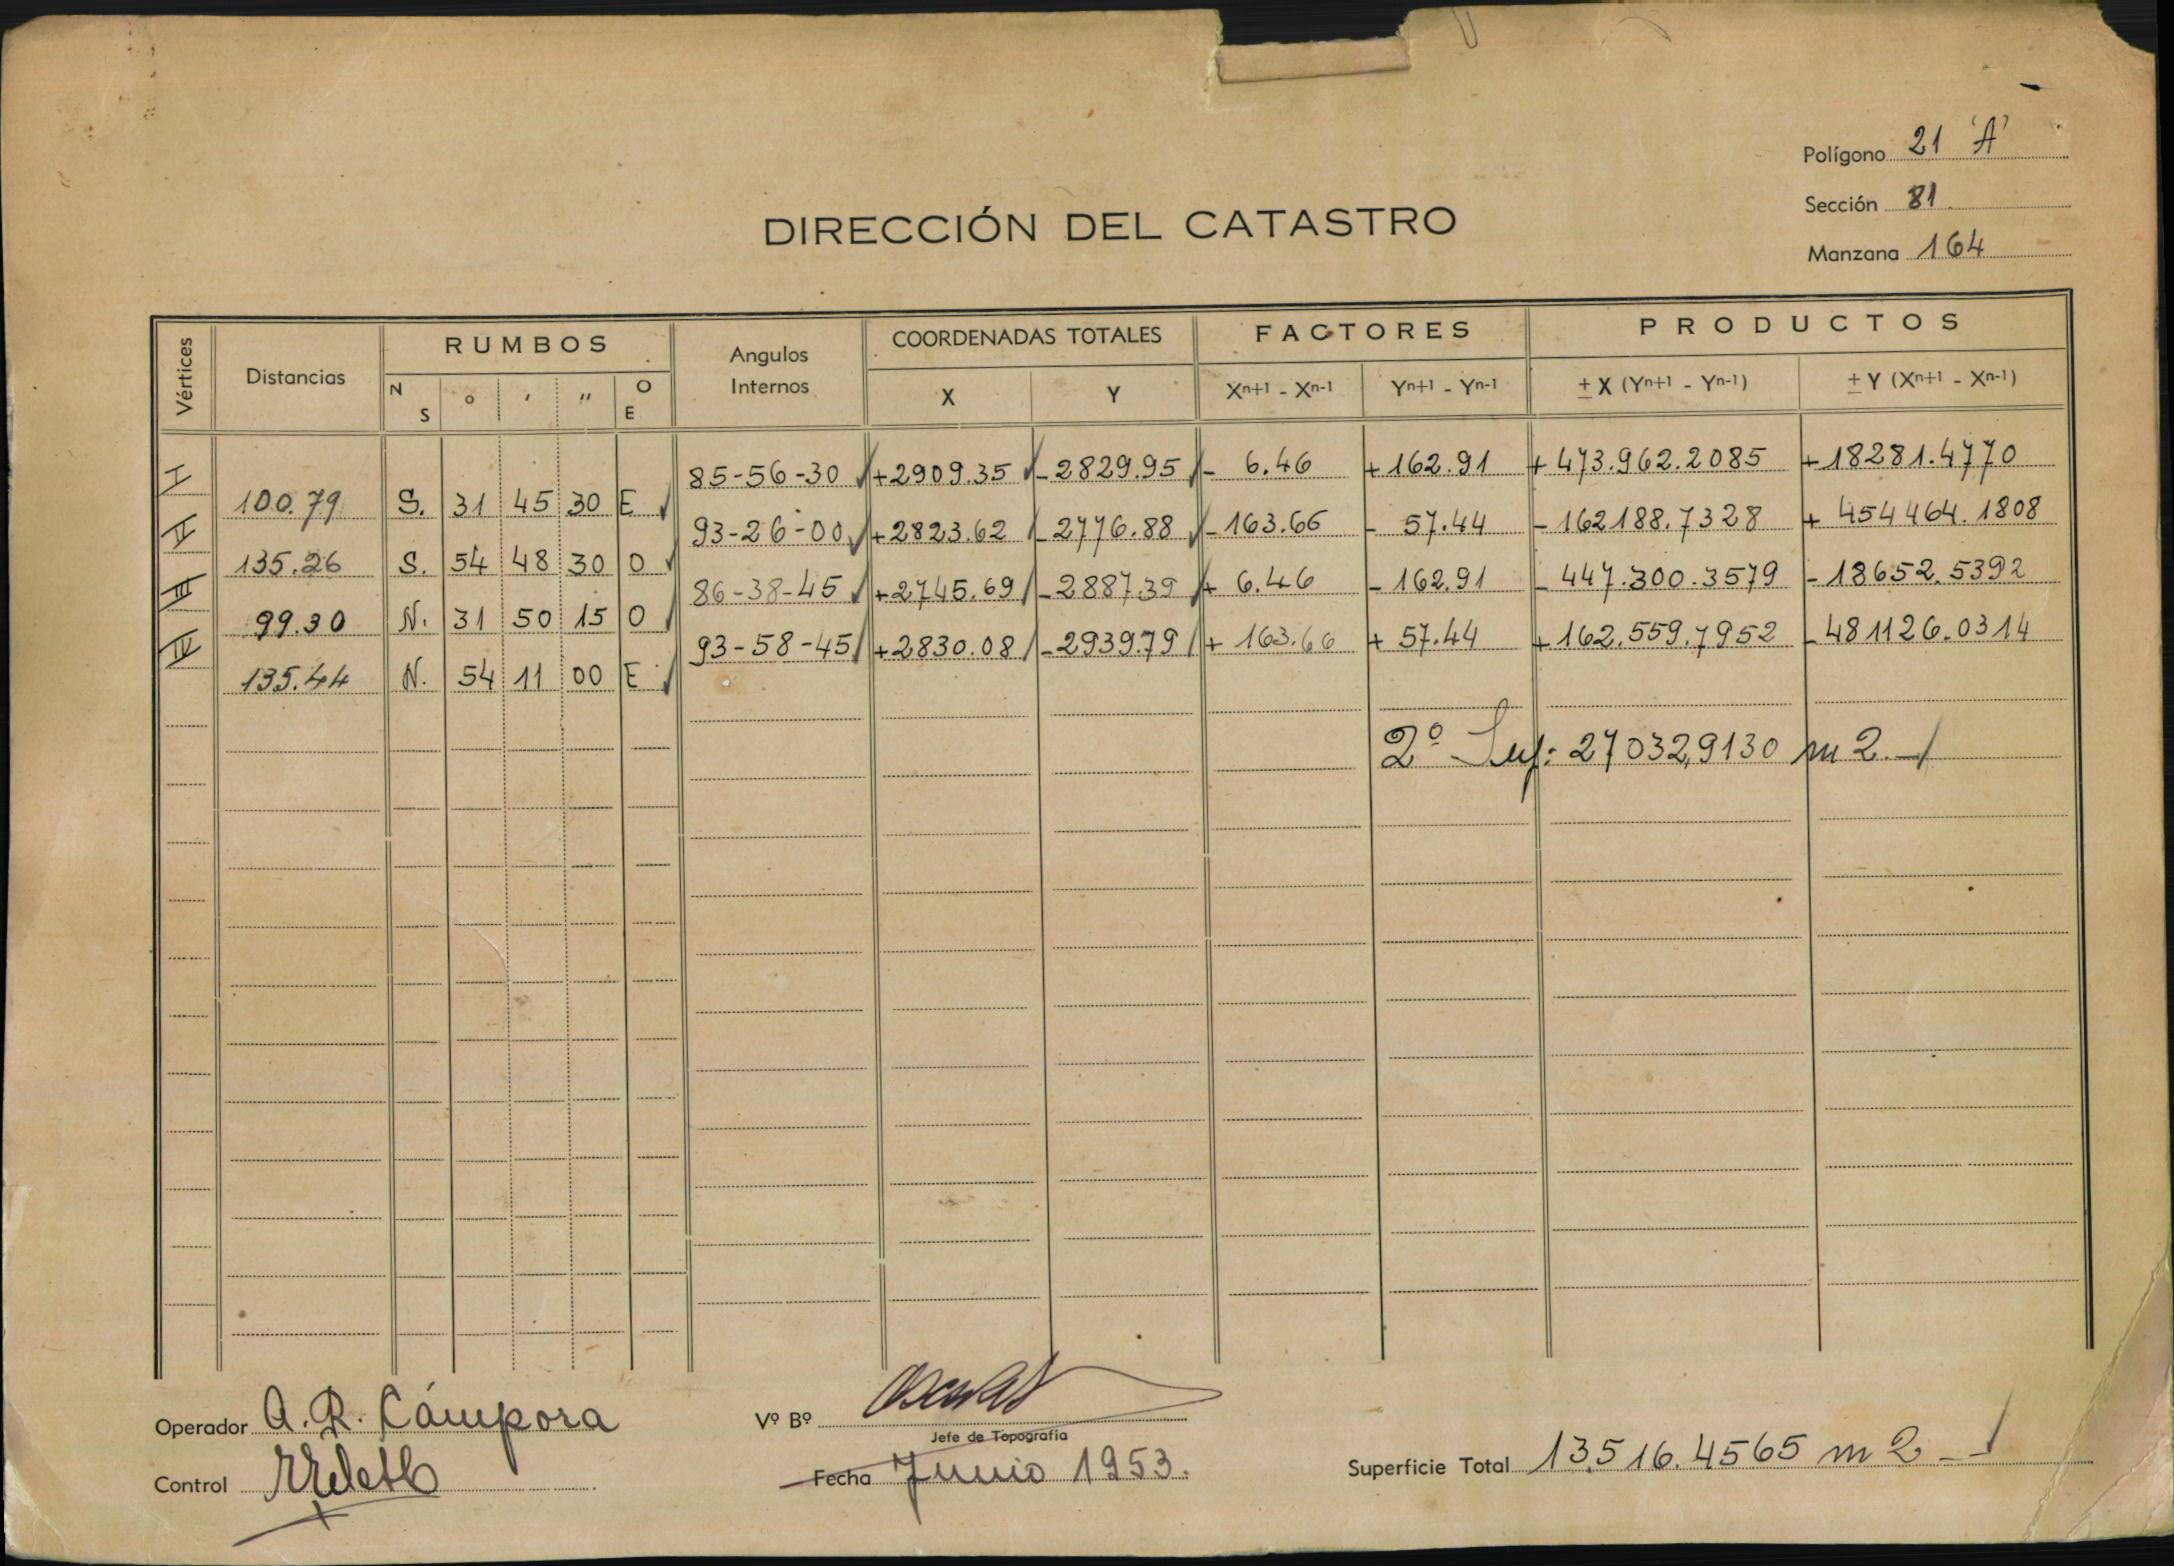 Polígono 21 'A'
Sección 81
Manzana 164
DIRECCIÓN DEL CATASTRO
Vértices Distancias RUMBOS Angulos Internos COORDENADAS TOTALES FACTORES PRODUCTOS
N S o ' '' O E X Y Xn+1 - Xn-1 Yn+1 - Yn-1 ± X (Yn+1 - Yn-1) ± Y (Xn+1 - Xn-1)
I 85-56-30 +2909.35 -2829.95 - 6.46 +162.91 +473.962.2085 +18281.4770
100.79 S. 31 45 30 E
II 93-26-00 +2823.62 -2776.88 -163.66 - 57.44 -162188.7328 + 454464.1808
135.26 S. 54 48 30 O
III 86-38-45 +2745.69 -2887.39 + 6.46 -162.91 -447.300.3579 -18652.5392
99.30 N. 31 50 15 O
IV 93-58-45 +2830.08 -2939.79 + 163.66 + 57.44 +162.559.7952 -481126.0314
135.44 N. 54 11 00 E
2º Sup: 27032,9130 m2.-
Operador A. R. Cámpora
Vº Bº
Jefe de Topografía
Control
Fecha Junio 1953.
Superficie Total 13.516.4565 m2 -